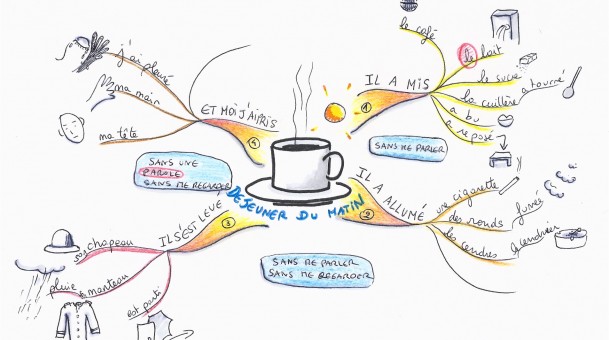 DEJEUNER DU MATIN
1
IL A MIS
le café
le lait
le sucre
la cuillère
a tourné
a bu
a reposé
SANS ME PARLER
2
IL A ALLUMÉ
une cigarette
des ronds
fumée
les cendres
cendrier
SANS ME PARLER
SANS ME REGARDER
3
IL S'EST LEVÉ
son chapeau
pluie
manteau
est parti
SANS UNE
PAROLE
SANS ME REGARDER
4
ET MOI J'AI PRIS
ma tête
ma main
j'ai pleuré